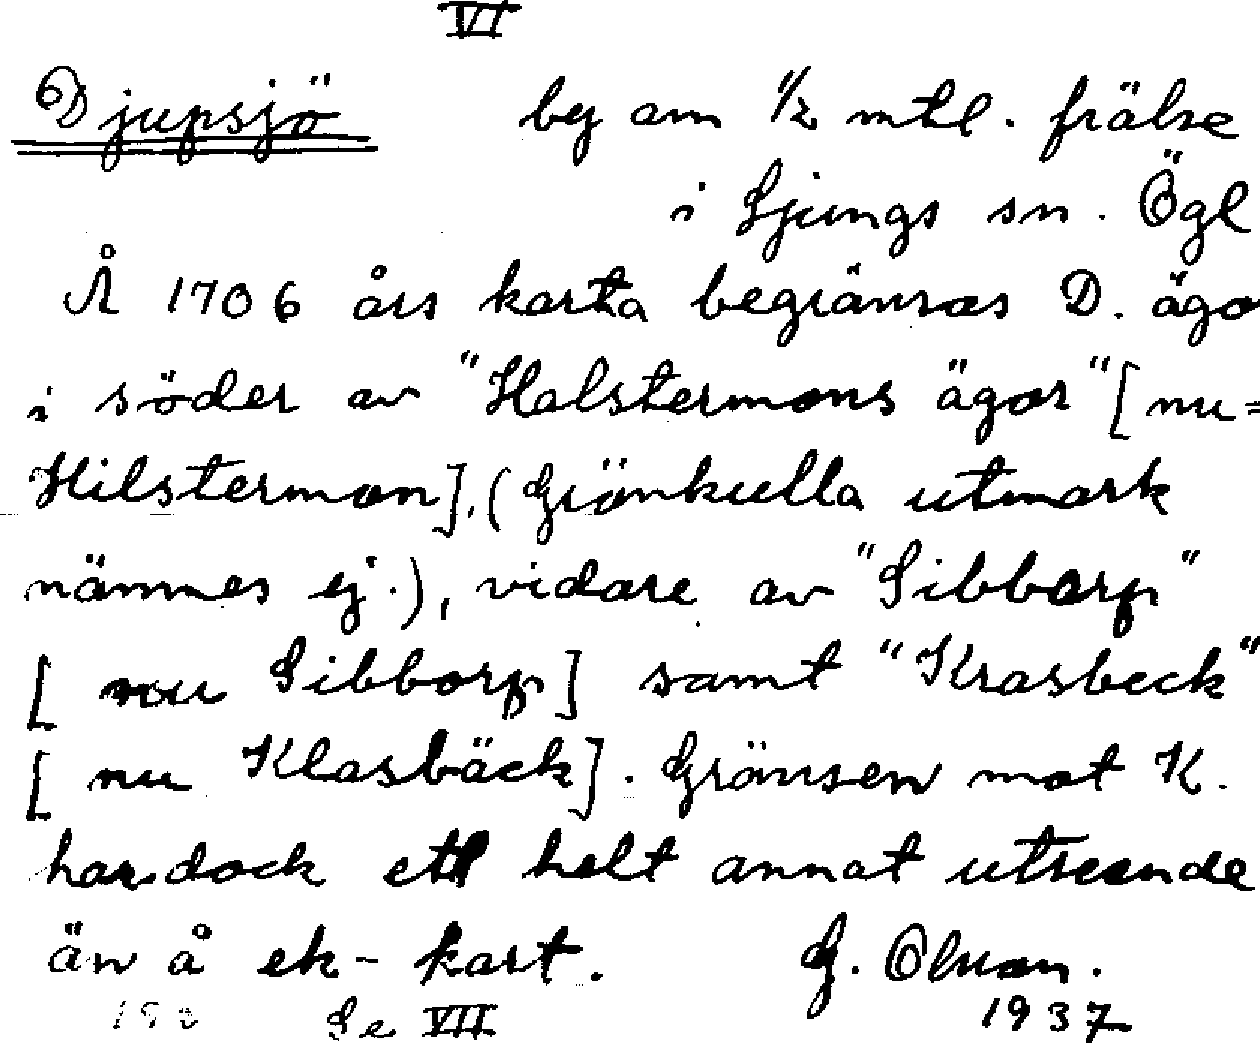 VI
Djupsjö by om 1/2 mtl. frälse
i Ljungs sn. Ögl
Å 1706 års karta begränsas D. ägor
i söder av "Halstermans ägor" [nu=
Hilsterman]. (Grönkulla utmark
nämnes ej.), vidare av "Sibborp"
[nu Sibborp] samt "Krasbeck"
[nu Klasbäck]. Gränsen mot K.
har dock ett helt annat utseende
än å ek-kart. G.
Se VII 1937